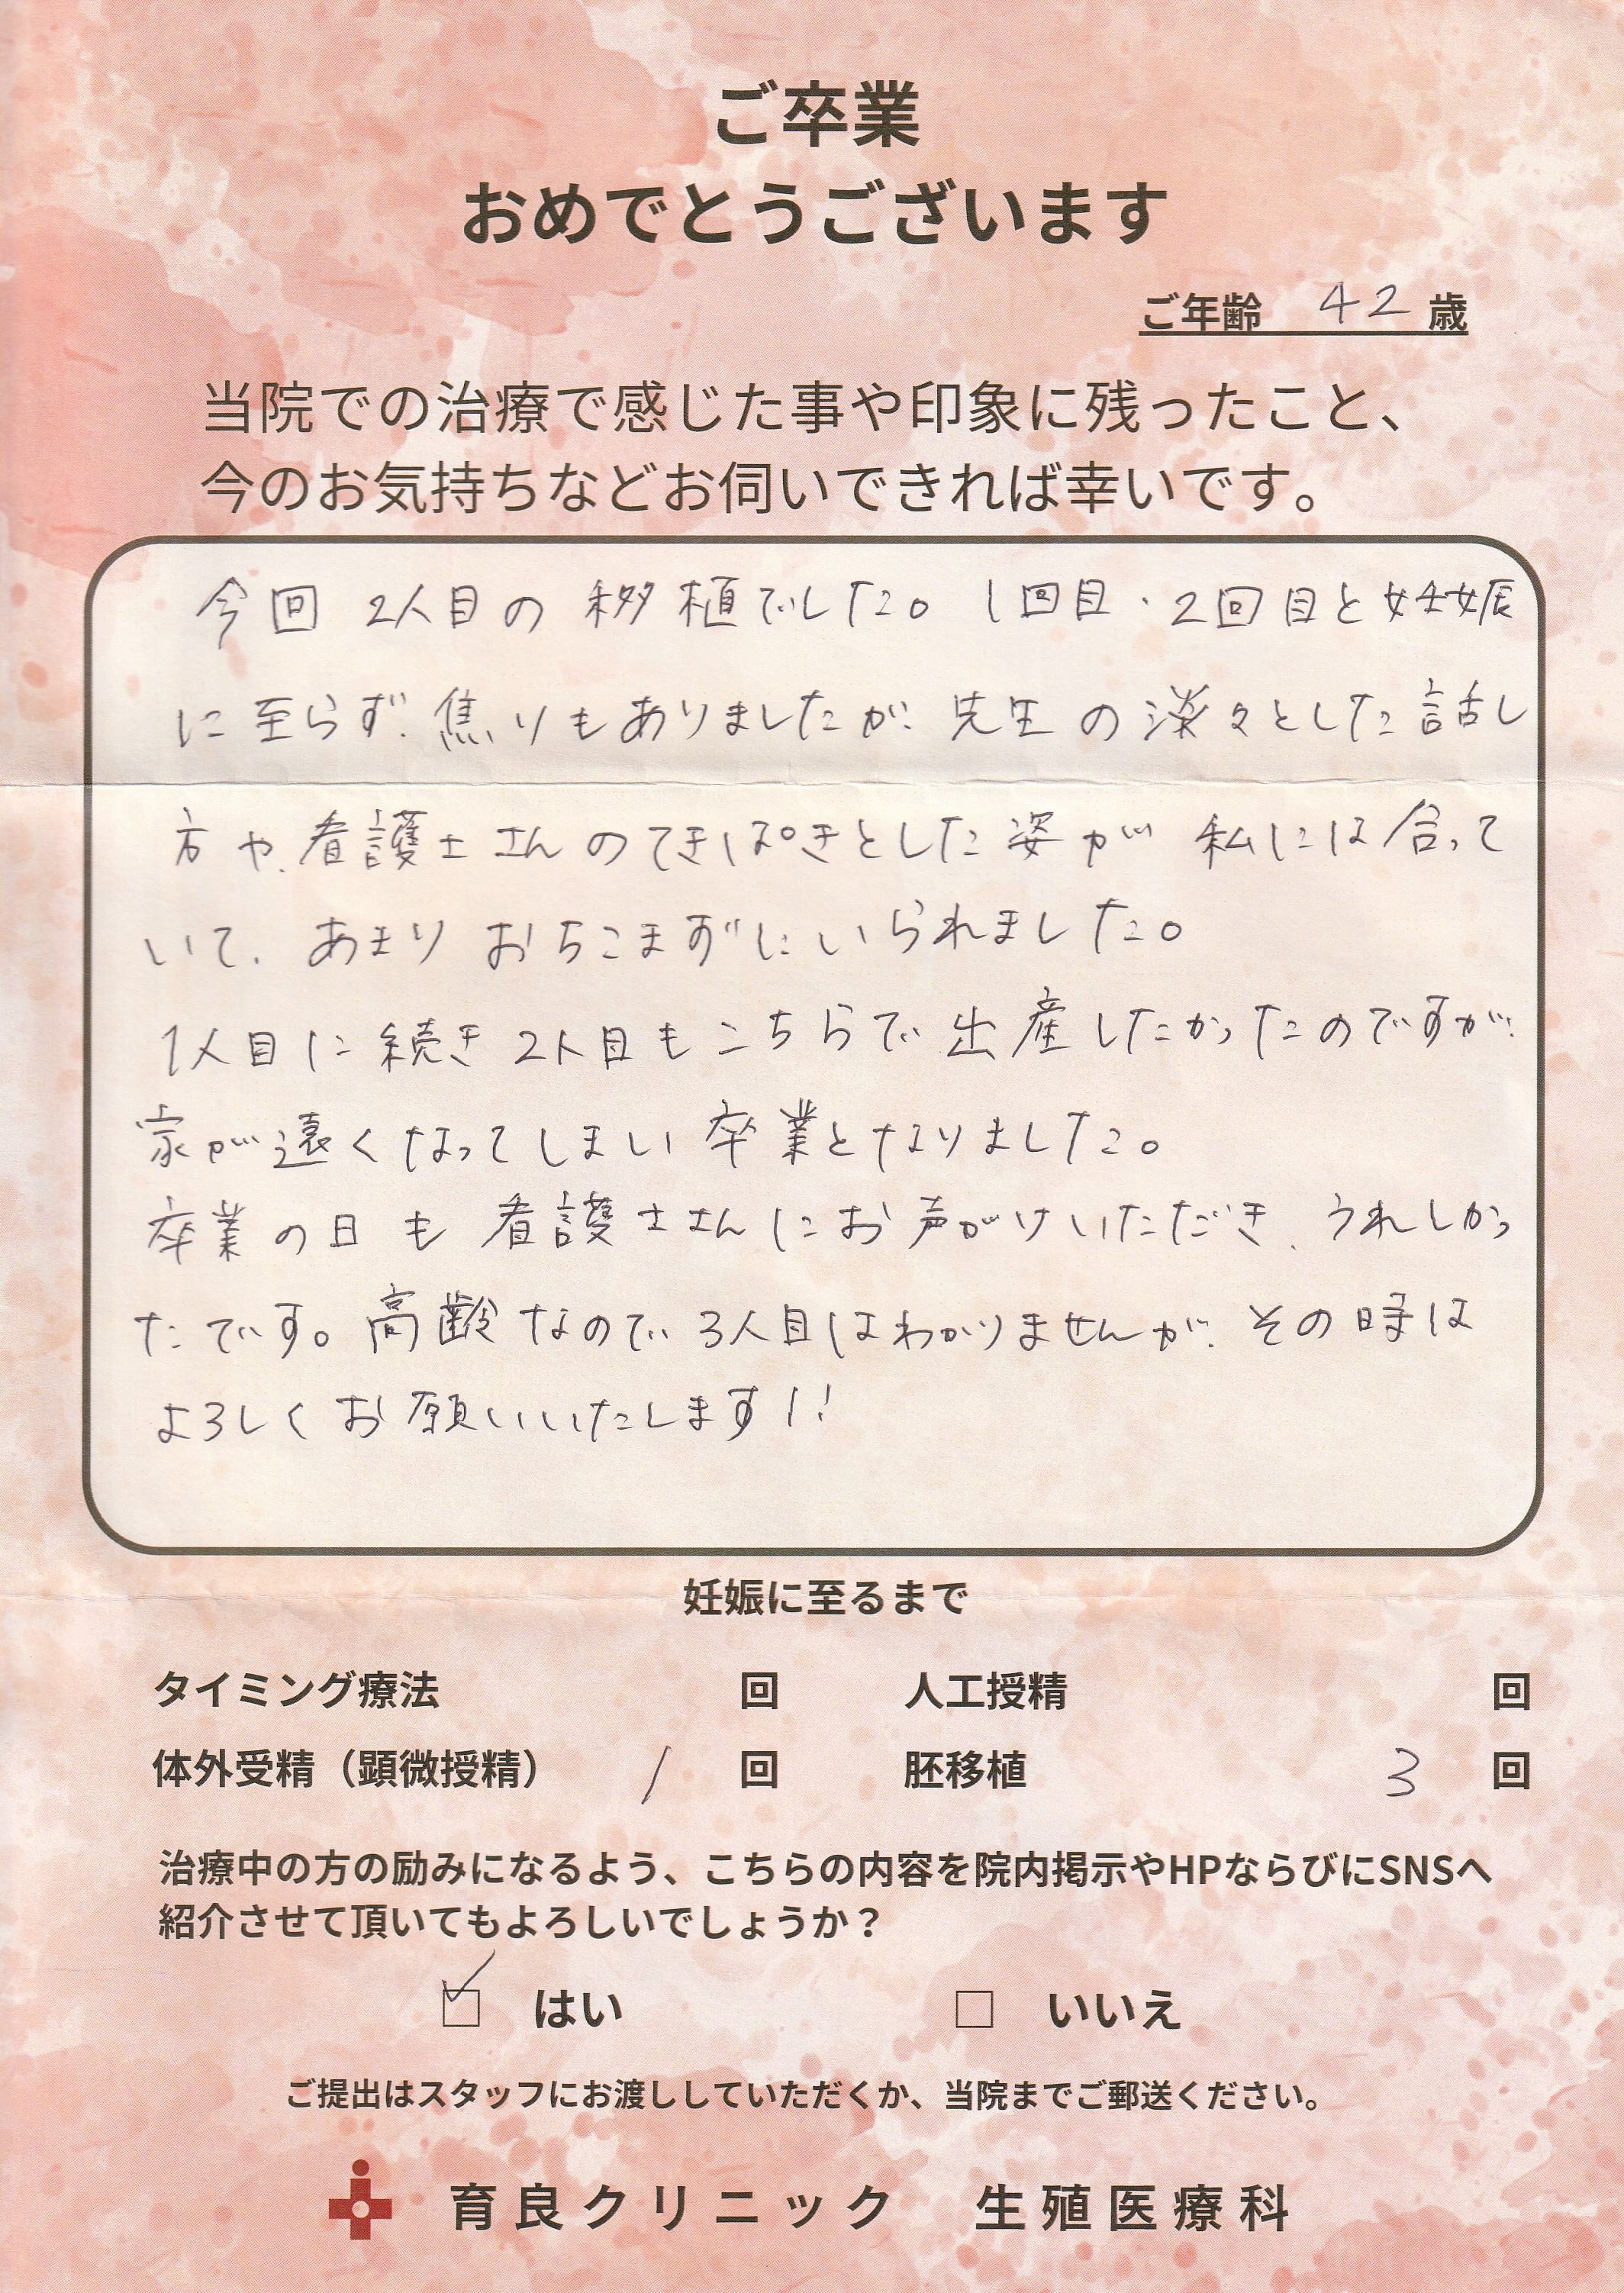 ご卒業
おめでとうございます
ご年齢 42 歳
当院での治療で感じた事や印象に残ったこと、
今のお気持ちなどお伺いできれば幸いです。
今回 2人目の移植でした。1回目・2回目と妊娠
に至らず、焦りもありましたが、先生の淡々とした話し
方や、看護士さんのてきぱきとした姿が私には合って
いて、あまりおちこまずにいられました。
1人目に続き2人目もこちらで出産したかったのですが、
家が遠くなってしまい卒業となりました。
卒業の日も看護士さんにお声がけいただき、うれしかっ
たです。高齢なので3人目はわかりませんが、その時は
よろしくお願いいたします!!
妊娠に至るまで
タイミング療法 回 人工授精 回
体外受精（顕微授精） 1 回 胚移植 3 回
治療中の方の励みになるよう、こちらの内容を院内掲示やHPならびにSNSへ
紹介させて頂いてもよろしいでしょうか？
☑ はい □ いいえ
ご提出はスタッフにお渡ししていただくか、当院までご郵送ください。
育良クリニック 生殖医療科